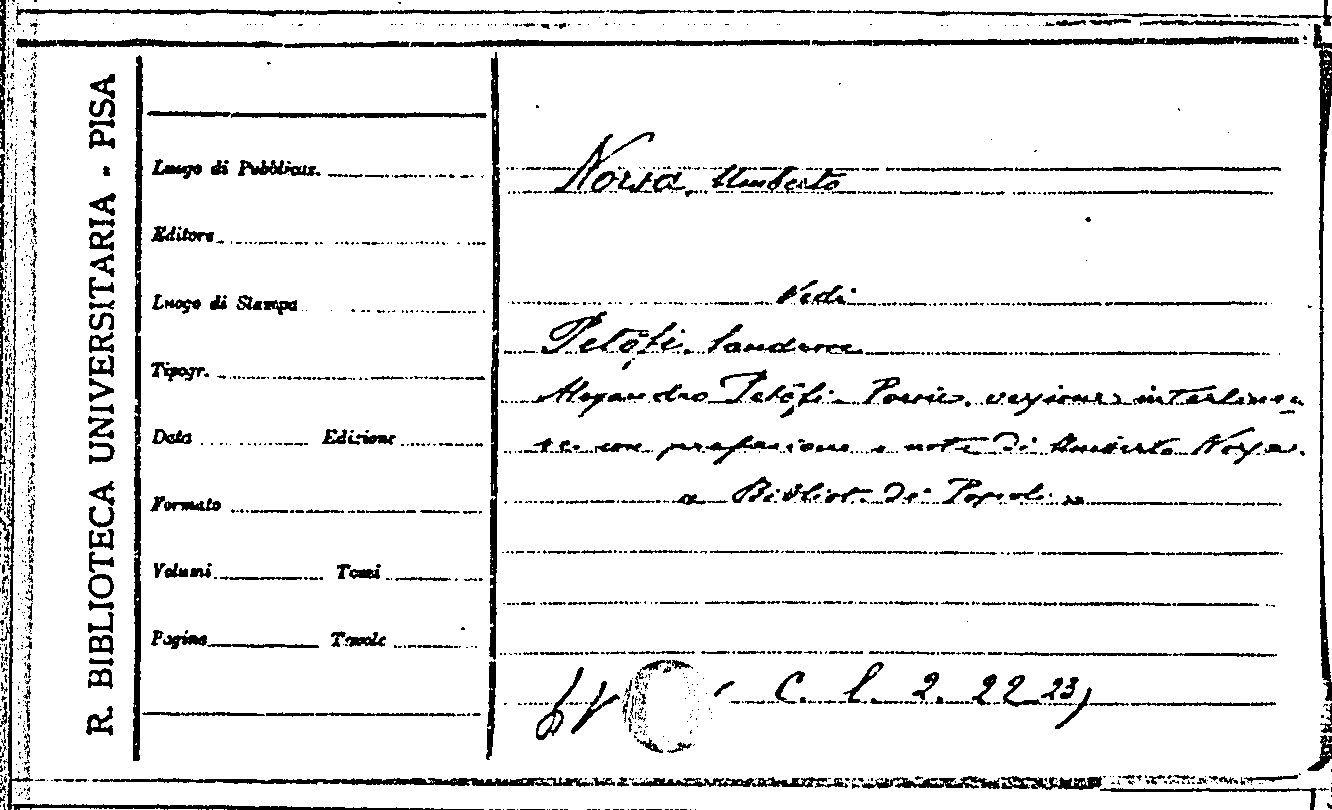 R. BIBLIOTECA UNIVERSITARIA - PISA
Luogo di Pubblicaz.
Editore
Luogo di Stampa
Tipogr.
Data Edizione
Formato
Volumi Tomi
Pagine Tavole
Norsa, Umberto
Vedi
Petőfi, Sandor
Alessandro Petőfi - Poesie, versione interlinea
re con prefazione e note di Umberto Norsa.
« Bibliot. dei Popoli »
C. l. 2. 22 23)